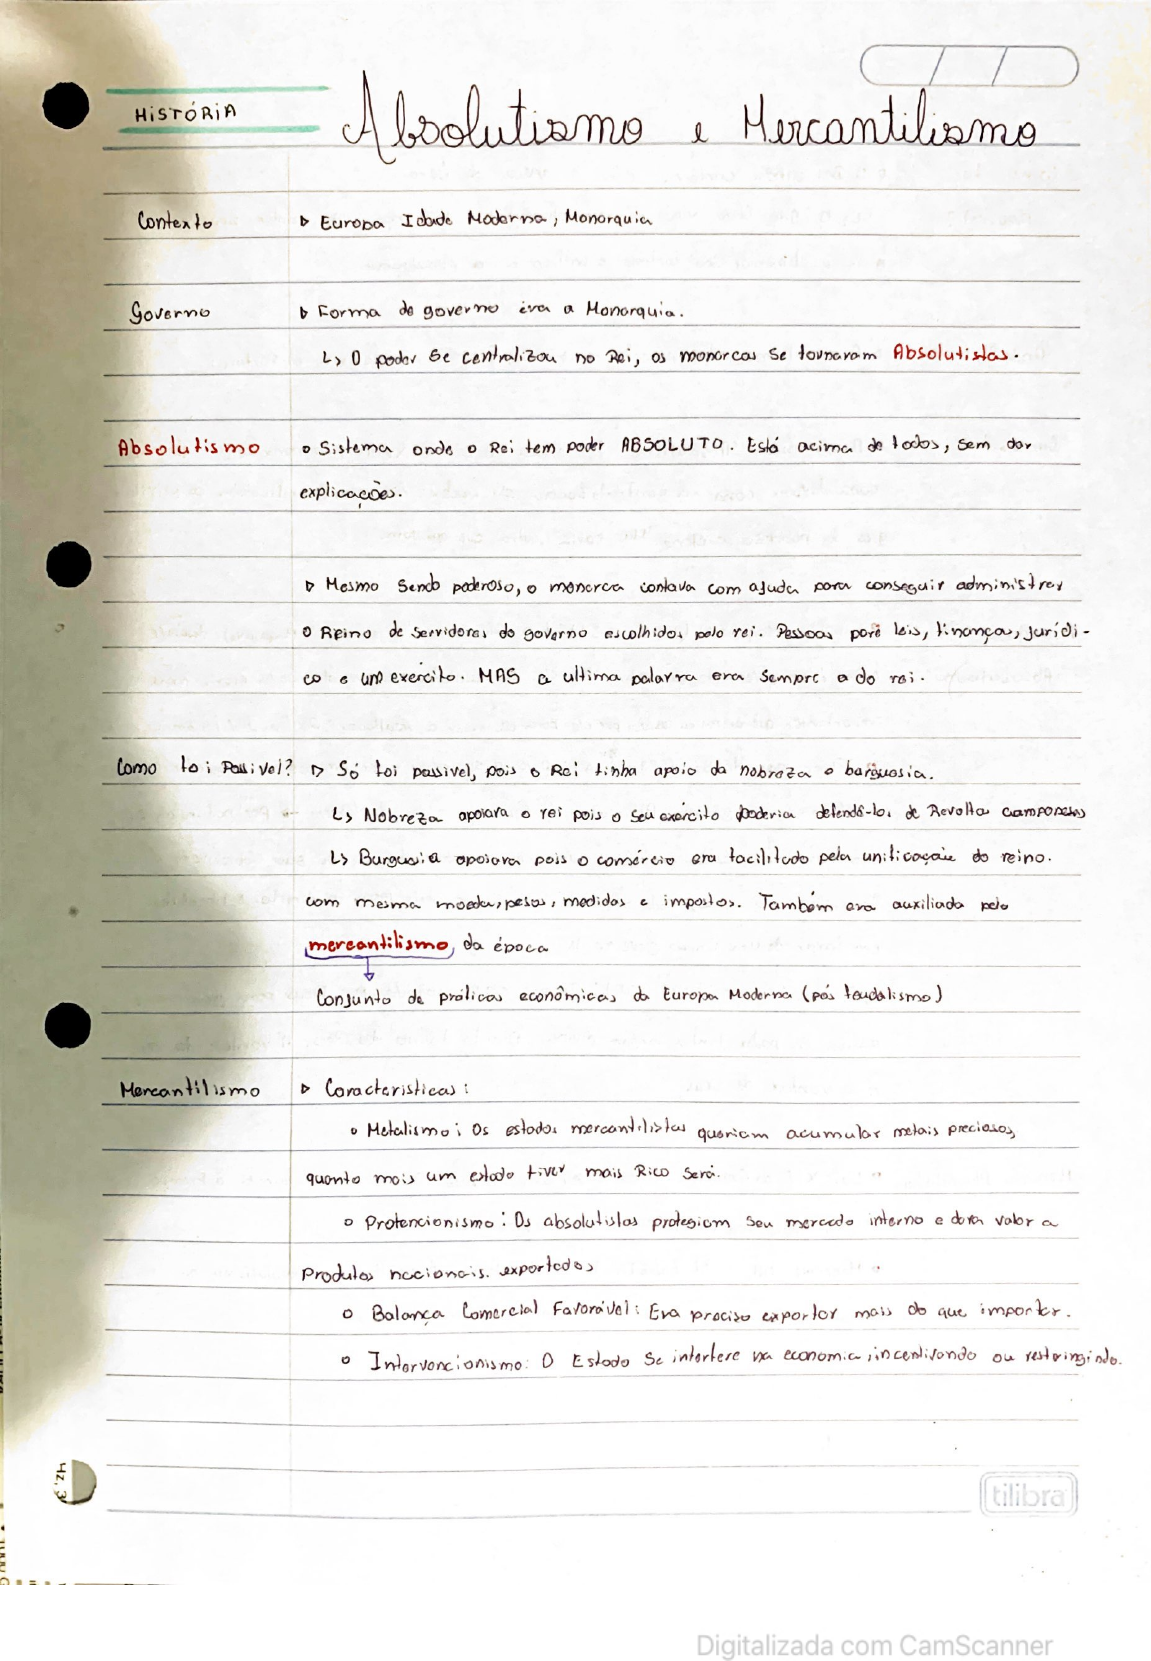 HISTÓRIA
Absolutismo e Mercantilismo
Contexto
▷ Europa Idade Moderna, Monarquia
Governo
▷ Forma de governo era a Monarquia.
↳ O poder se centralizou no Rei, os monarcas se tornaram Absolutistas.
Absolutismo
o Sistema onde o Rei tem poder ABSOLUTO. Está acima de todos, sem dar
explicações.
▷ Mesmo sendo poderoso, o monarca contava com ajuda para conseguir administrar
o Reino de servidores do governo escolhidos pelo rei. Pessoas para leis, finanças, jurídi-
co e um exercito. MAS a ultima palavra era sempre a do rei.
Como foi Possivel?
▷ Só foi possivel, pois o Rei tinha apoio da nobreza e burguesia.
↳ Nobreza apoiava o rei pois o seu exército poderia defendê-los de Revoltas camponesas
↳ Burguesia apoiava pois o comércio era facilitado pela unificação do reino.
com mesma moeda, pesos, medidas e impostos. Também era auxiliada pelo
mercantilismo da época
Conjunto de práticas econômicas da Europa Moderna (pós feudalismo)
Mercantilismo
▷ Caracteristicas:
o Metalismo: Os estados mercantilistas queriam acumular metais preciosos,
quanto mais um estado tiver mais Rico será.
o Protencionismo: Os absolutistas protegiam seu mercado interno e davam valor a
Produtos nacionais. exportados
o Balança Comercial Favorável: Era preciso exportar mais do que importar.
o Intervencionismo: O Estado se interfere na economia, incentivando ou restringindo.
tilibra
Digitalizada com CamScanner